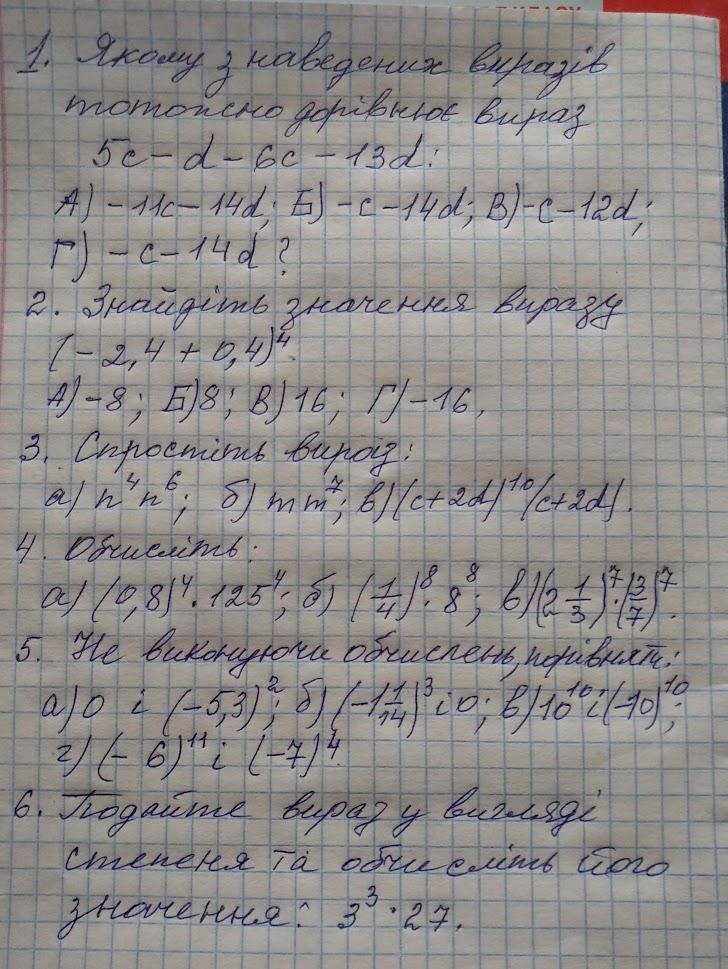 1. Якому з наведених виразів
тотожно дорівнює вираз
5c - d - 6c - 13d:
А) -11c - 14d; Б) -c - 14d; В) -c - 12d;
Г) -c - 14d?
2. Знайдіть значення виразу
(-2,4 + 0,4)⁴.
А) -8; Б) 8; В) 16; Г) -16.
3. Спростіть вираз:
а) n⁴n⁶; б) mm⁷; в) (c+2d)¹⁰(c+2d).
4. Обчисліть:
а) (0,8)⁴ · 125⁴; б) (1/4)⁸ · 8⁸; в) (2 1/3)⁷ · (3/7)⁷.
5. Не виконуючи обчислень, порівняти:
а) 0 і (-5,3)²; б) (-1 1/14)³ і 0; в) 10¹⁰ і (-10)¹⁰;
г) (-6)¹¹ і (-7)⁴.
6. Подайте вираз у вигляді
степеня та обчисліть його
значення: 3³ · 27.